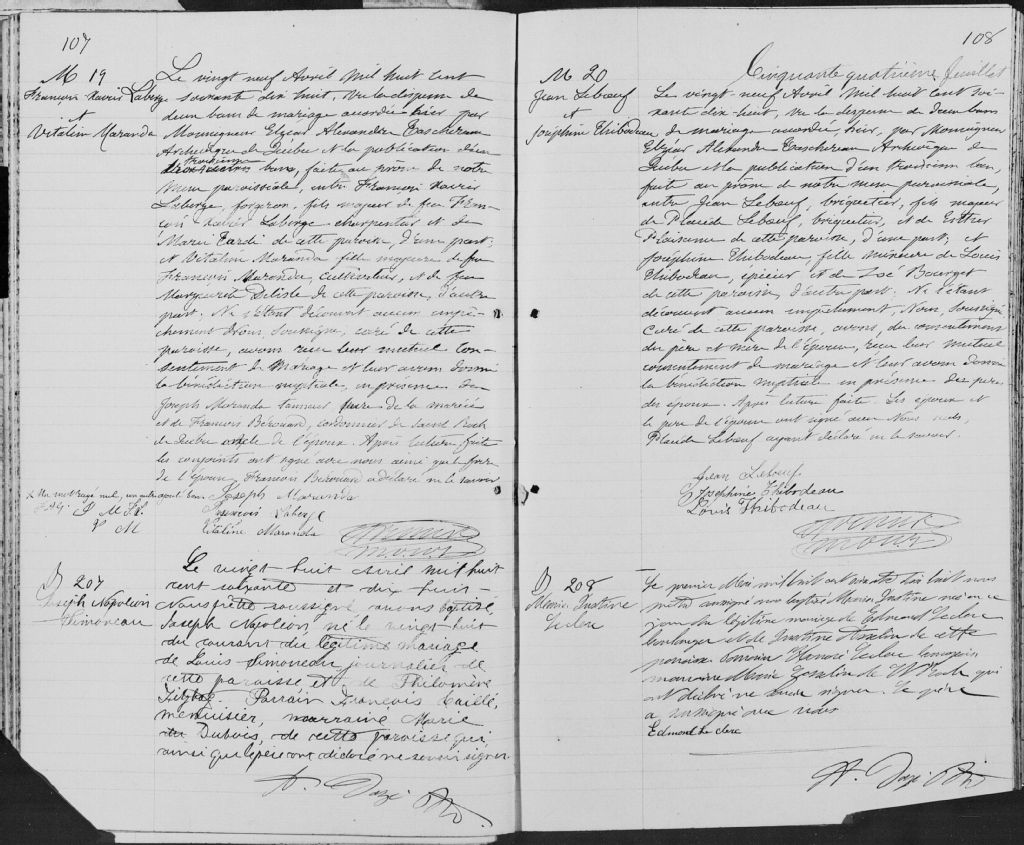 107
M 19
François Xavier Laberge
et
Vitaline Maranda
Le vingt neuf Avril Mil huit cent
soixante dix huit, Vu la dispense de
deux bans de mariage accordée hier par
Monseigneur Elzéar Alexandre Taschereau
Archevêque de Québec et la publication d'un
troisième
bans, faite au prône de notre
Messe paroissiale, entre François Xavier
Laberge, forgeron, fils majeur de feu Fran-
çois Xavier Laberge charpentier et de
Marie Tardi de cette paroisse, d'une part;
et Vitaline Maranda fille majeure de feu
François Maranda, cultivateur, et de feu
Marguerite Delisle de cette paroisse, d'autre
part. Ne s'étant découvert aucun empê-
chement Nous Soussigné, curé de cette
paroisse, avons reçu leur mutuel con-
sentement de Mariage et leur avons donné
la bénédiction nuptiale, en présence de
Joseph Maranda tanneur frère de la mariée
et de François Berouard, cordonnier de Saint Roch
de Québec oncle de l'époux. Après lecture faite
les conjoints ont signé avec nous ainsi que le frère
de l'épouse, François Berouard a déclaré ne le savoir
x Un mot rayé nul, un autre ajouté bon.
Joseph Maranda
François Laberge
Vitaline Maranda
B 207
Joseph Napoléon
Simoneau
Le vingt huit Avril mil huit
cent soixante et dix huit
Nous prêtre soussigné avons baptisé
Joseph Napoléon né le vingt huit
du courant du légitime mariage
de Louis Simoneau journalier de
cette paroisse et de Philomène
Parrain François
menuisier, marraine Marie
Dubois, de cette paroisse qui
ainsi que le père ont déclaré ne savoir signer.
108
Cinquante quatrième feuillet
M 20
Jean Lebœuf
et
Joséphine Thibodeau
Le vingt-neuf Avril Mil huit cent soi-
xante dix huit, Vu la dispense de deux bans
de mariage accordée, hier, par Monseigneur
Elzéar Alexandre Taschereau Archevêque de
Québec et la publication d'un troisième ban,
faite au prône de notre messe paroissiale,
entre Jean Lebœuf, briquetier, fils majeur
de Placide Lebœuf, briquetier, et de Esther
Plaisance de cette paroisse, d'une part; et
Joséphine Thibodeau, fille mineure de Louis
Thibodeau, épicier et de Zoé Bourget
de cette paroisse, d'autre part. Ne s'étant
découvert aucun empêchement, Nous, Soussigné
Curé de cette paroisse, avons, du consentement
du père et mère de l'épouse, reçu leur mutuel
consentement de mariage et leur avons donné
la bénédiction nuptiale en présence des pères
des époux. Après lecture faite. Les époux et
le père de l'épouse ont signé avec Nous
Placide Lebœuf ayant déclaré ne le savoir.
Jean Lebœuf
Joséphine Thibodeau
Louis Thibodeau
B 208
Marie Justine
Leclerc
Le premier Mai mil huit cent soixante dix huit nous
prêtre soussigné avons baptisé Marie Justine née en ce
jour du légitime mariage de Edmond Leclerc
boulanger et de Justine Gosselin de cette
paroisse. Parrain Honoré Leclerc
marraine Marie Gosselin de St Roch qui
ont déclaré ne savoir signer. Le père
a soussigné avec nous
Edmond Leclerc